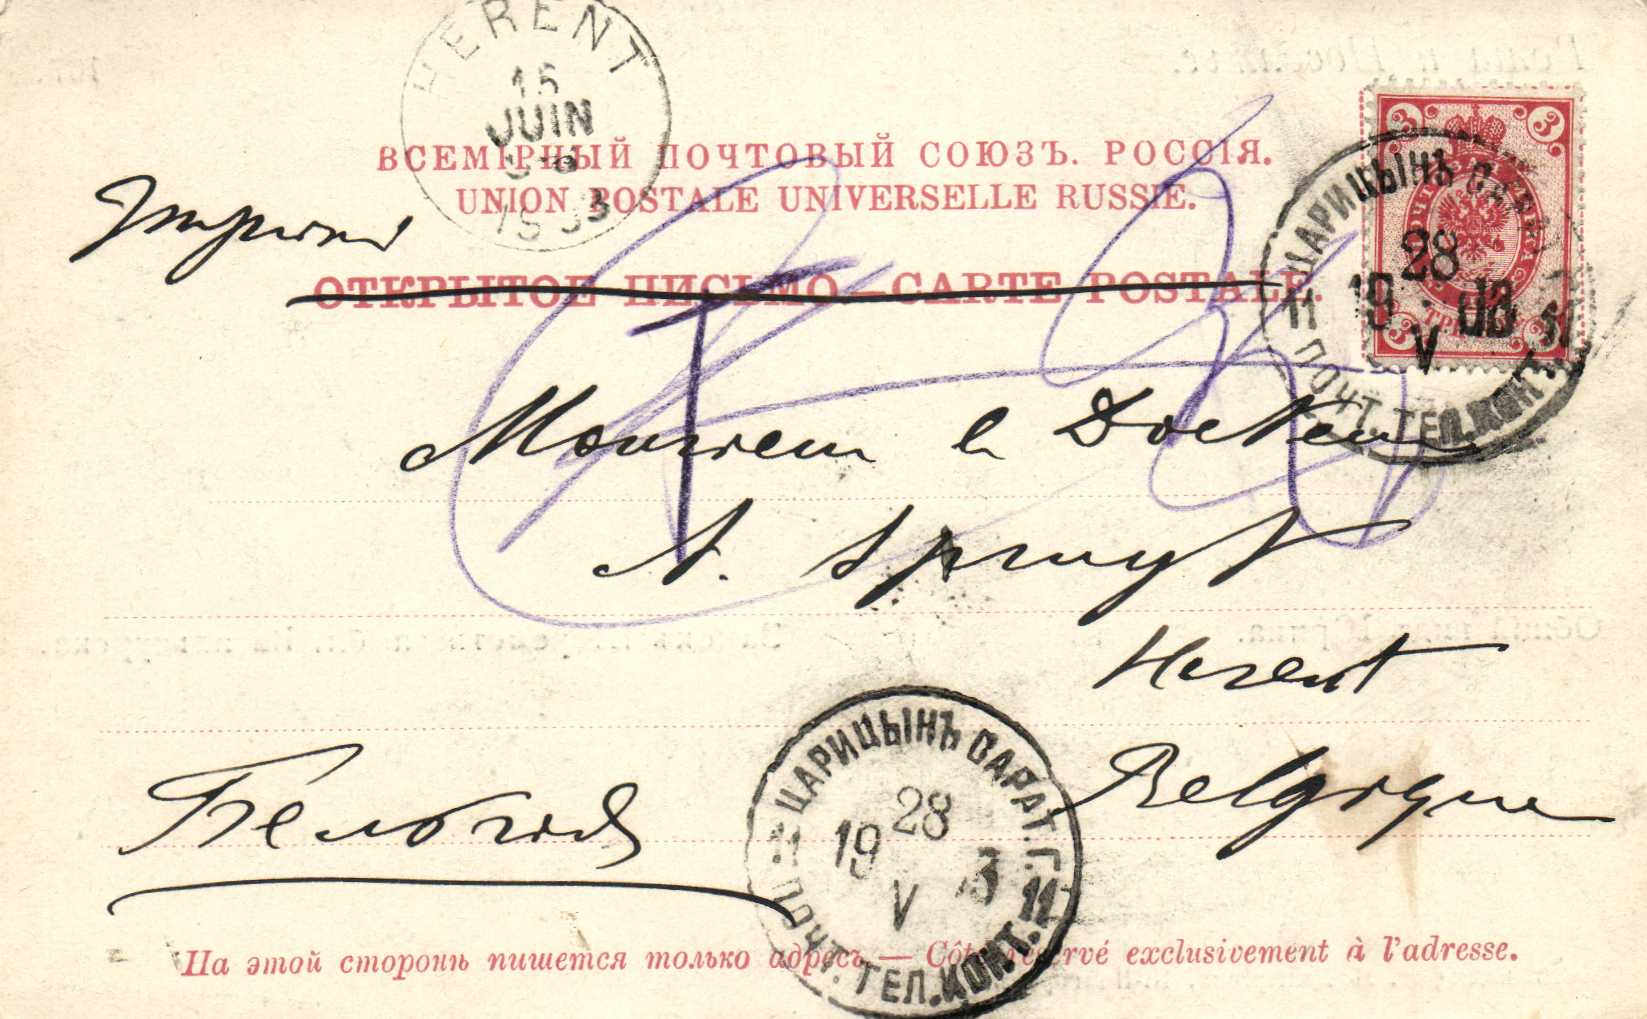 HERENT
15
JUIN
1903
ВСЕМІРНЫЙ ПОЧТОВЫЙ СОЮЗЪ. РОССІЯ.
UNION POSTALE UNIVERSELLE RUSSIE.
Imprimé
ОТКРЫТОЕ ПИСЬМО — CARTE POSTALE.
3 3
ЦАРИЦЫНЪ САРАТ
28
11 19 03 11
V
ПОЧТ. ТЕЛ. КОНТ.
T
Monsieur le Docteur
A. Spruyt
Herent
Belgique
Бельгія
ЦАРИЦЫНЪ САРАТ. Г.
28
11 19 3 11
V
ПОЧТ. ТЕЛ. КОНТ.
На этой сторонѣ пишется только адресъ. — Côté réservé exclusivement à l'adresse.